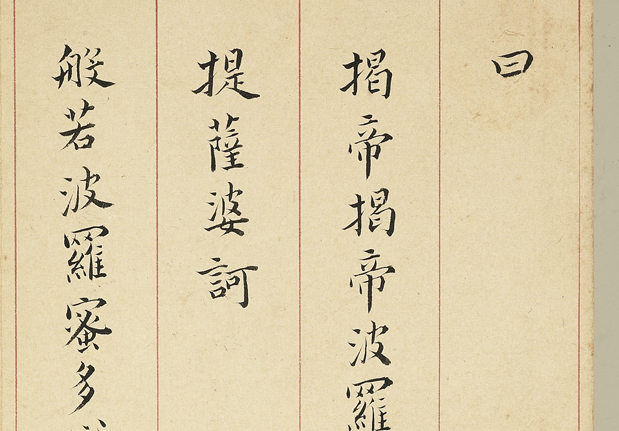 曰
揭帝揭帝波羅
提薩婆訶
般若波羅蜜多